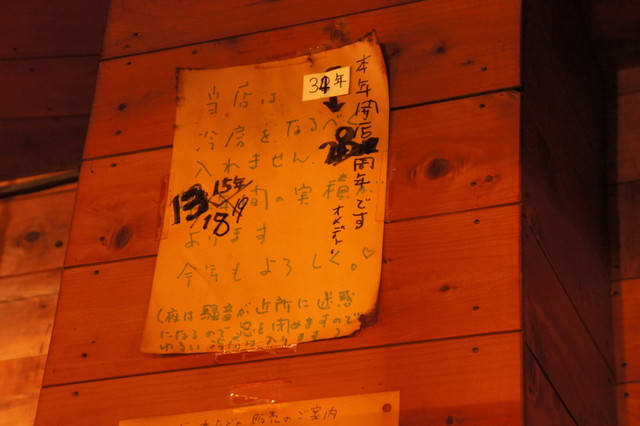 当店は
冷房をなるべく
入れません。
15年
13
18
19
間の実積が
あります
今年もよろしく。♡
(夜は騒音が近所に迷惑
になるので窓を閉めますので
ゆるい冷房は入ります
本年開店
28
周年です
オメデトウ
34年
販売のご案内